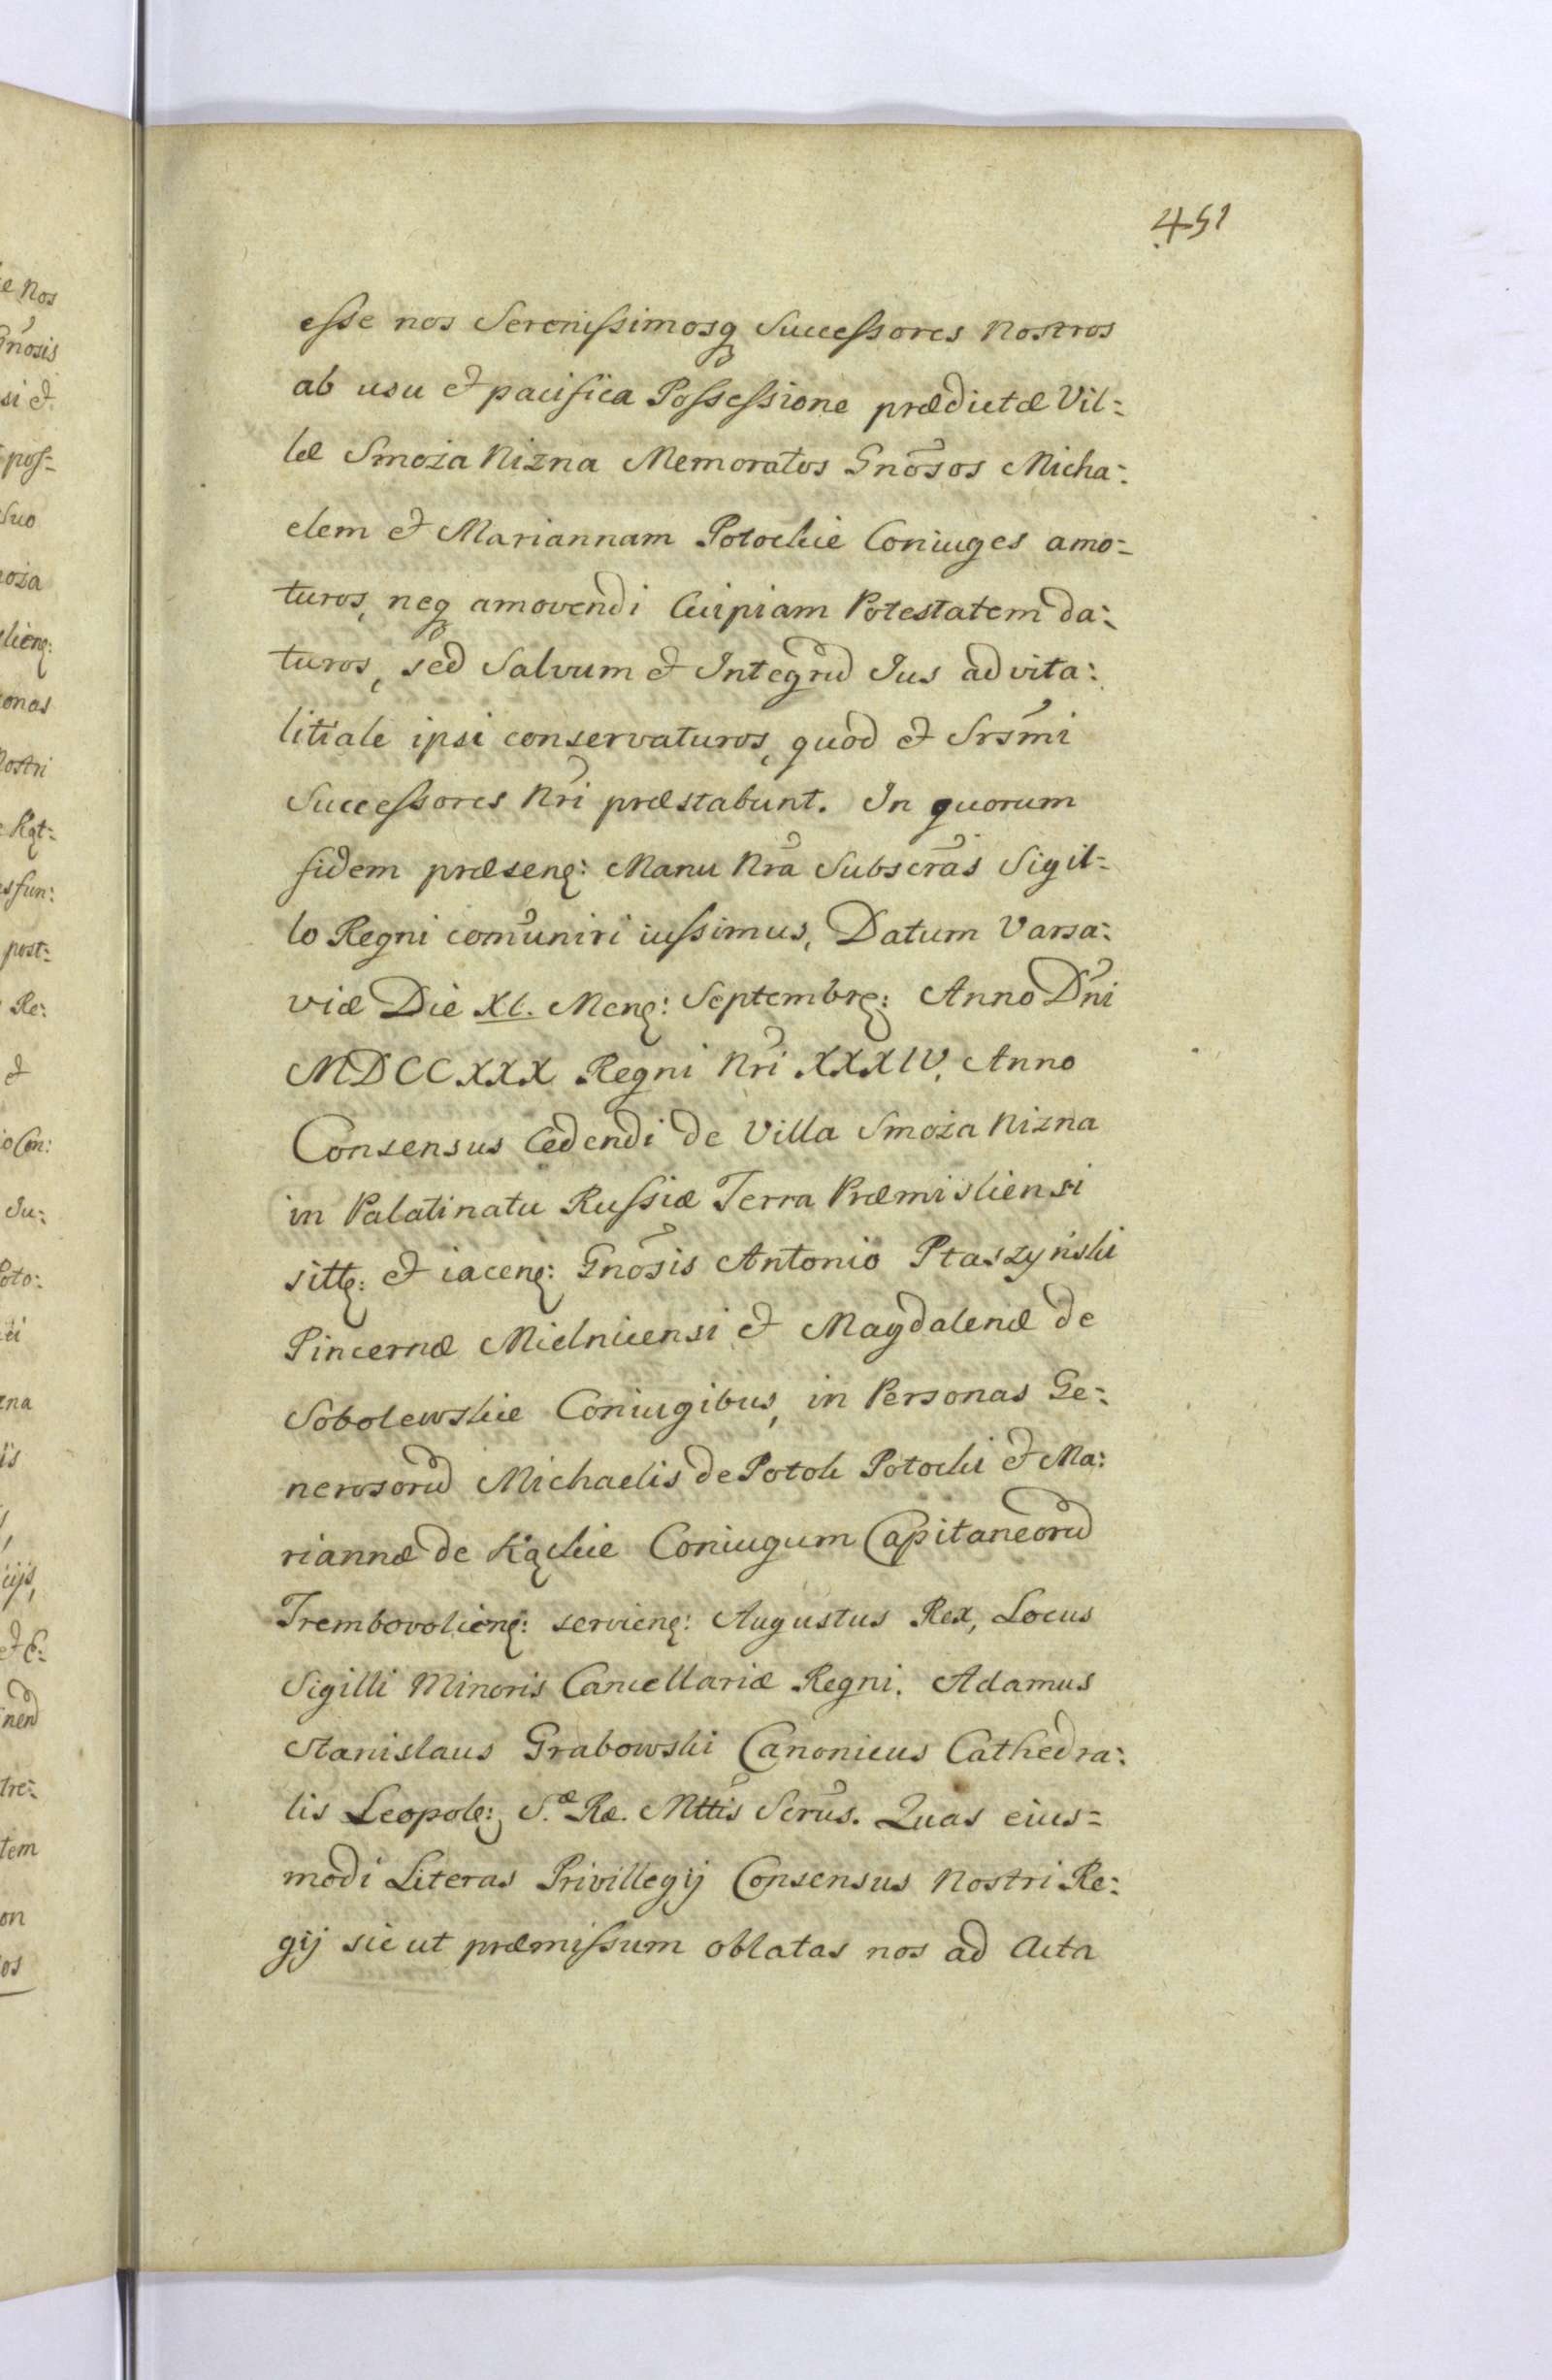 451
esse nos Serenissimosq Successores Nostros
ab usu et pacifica Possessione prædictæ Vil-
læ Smoża Niżna Memoratos Gnosos Micha-
elem et Mariannam Potockie Coniuges amo-
turos, neq amovendi Cuipiam Potestatem da-
turos, sed Salvum et Integrũ Ius ad vita-
litiale ipsi conservaturos, quod et Srsmi
Successores Nri præstabunt. In quorum
fidem præsenę: Manu Nra Subscras Sigil-
lo Regni comuniri iussimus, Datum Varsa-
viæ Die XI. Menę: Septembrę: Anno Dni
MDCCXXX Regni Nri XXXIV. Anno
Consensus Cedendi de Villa Smoża Niżna
in Palatinatu Russiæ Terra Præmisliensi
sittę: et iacenę: Gnosis Antonio Ptaszyński
Pincernæ Mielnicensi et Magdalenæ de
Sobolewskie Coniugibus, in Personas Ge-
nerosorũ Michaelis de Potok Potocki et Ma-
riannæ de Kąckie Coniugum Capitaneorũ
Trembovolienę: servienę: Augustus Rex, Locus
Sigilli Minoris Cancellariæ Regni. Adamus
Stanislaus Grabowski Canonicus Cathedra-
lis Leopolę: S.æ Ræ. Mttis Scrus. Quas eius-
modi Literas Privillegij Consensus Nostri Re-
gij sic ut præmissum oblatas nos ad Acta